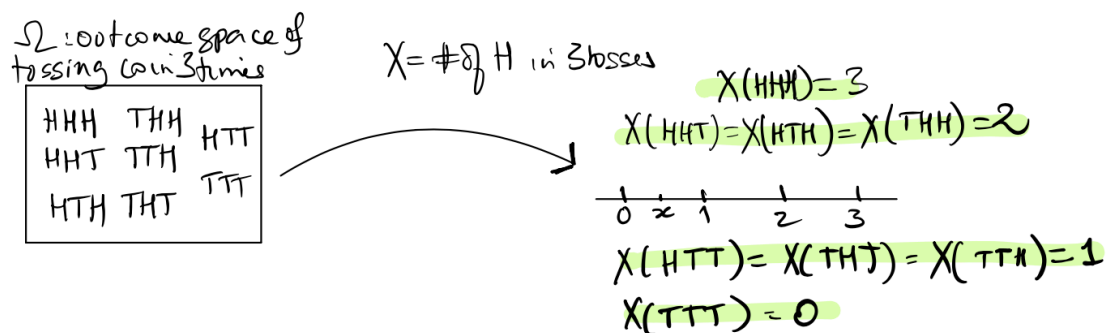 Ω : outcome space of
tossing coin 3 times
HHH THH HTT
HHT TTH
HTH THT TTT
X = # of H in 3 tosses
X(HHH) = 3
X(HHT) = X(HTH) = X(THH) = 2
0 x 1 2 3
X(HTT) = X(THT) = X(TTH) = 1
X(TTT) = 0